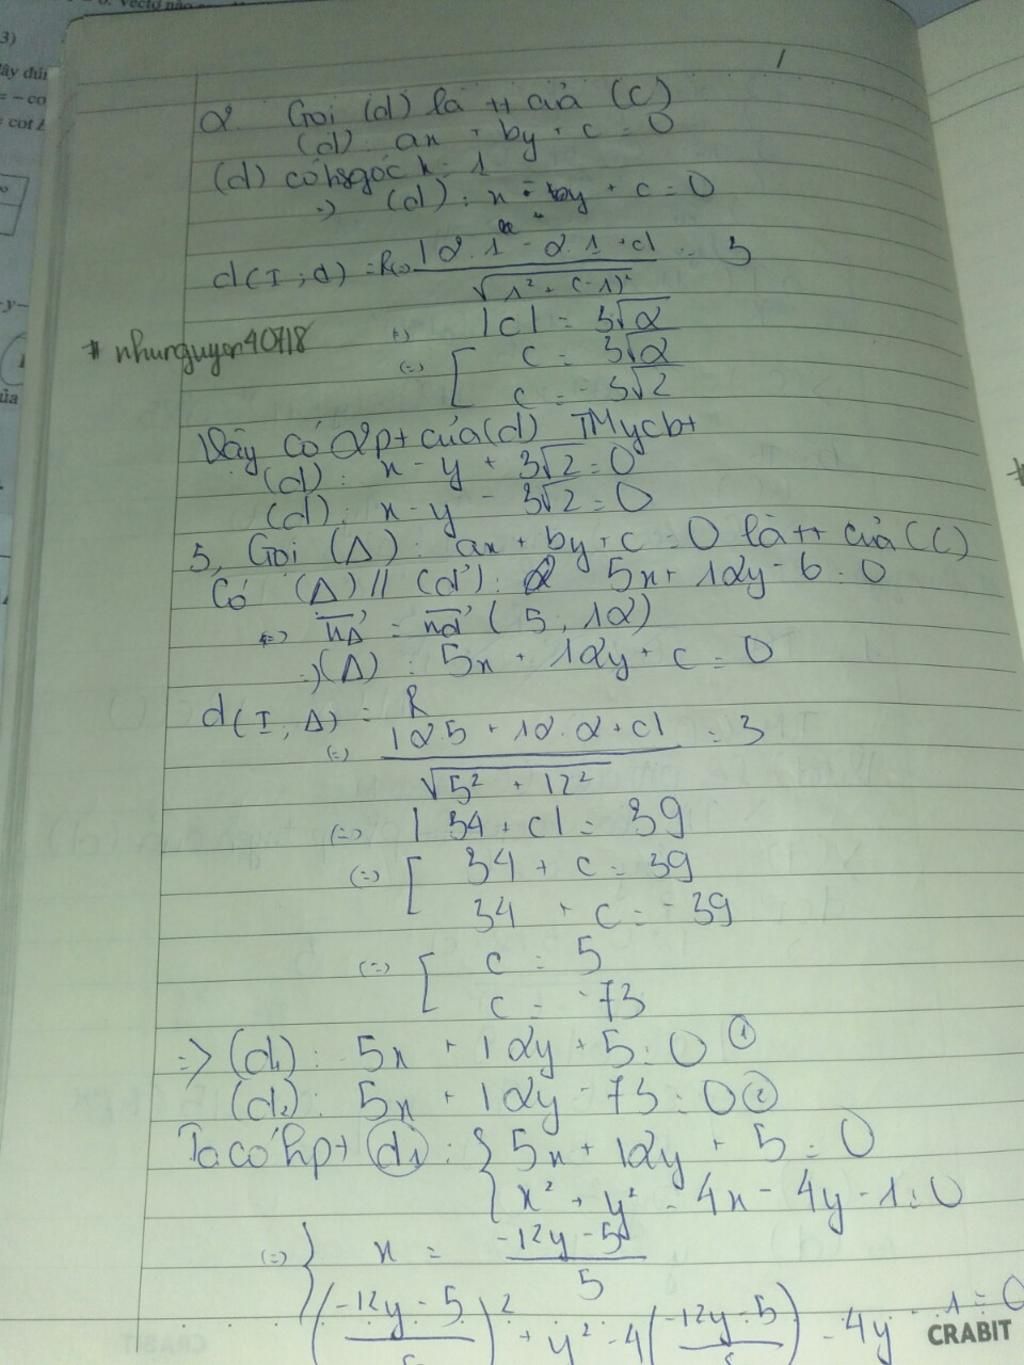 3)
ây đún
= - co
cot
2. Gọi (d) là tt của (C)
(d): ax + by + c = 0
(d) có hsgóc k = 1
=> (d): x - y + c = 0
d(I; d) = R <=> |2.1 - 2.1 + c| / √(1² + (-1)²) = 3
|c| = 3√2
(=) [ c = 3√2
c = -3√2
# nhunguyen40718
Vậy có 2 pt của (d) TMycbt
(d): x - y + 3√2 = 0
(d): x - y - 3√2 = 0
5, Gọi (Δ): ax + by + c = 0 là tt của (C)
Có (Δ) // (d'): 5x + 12y - 6 = 0
(=) n⃗Δ = n⃗d' (5, 12)
=) (Δ): 5x + 12y + c = 0
d(I, Δ) = R
(=) |2.5 + 12.2 + c| / √(5² + 12²) = 3
(=) |34 + c| = 39
(=) [ 34 + c = 39
34 + c = -39
(=) [ c = 5
c = -73
=> (d₁): 5x + 12y + 5 = 0 ①
(d₂): 5x + 12y - 73 = 0 ②
Ta có hpt (d₁): { 5x + 12y + 5 = 0
x² + y² - 4x - 4y - 1 = 0
(=) { x = (-12y - 5) / 5
((-12y - 5) / 5)² + y² - 4((-12y - 5) / 5) - 4y - 1 = 0
CRABIT